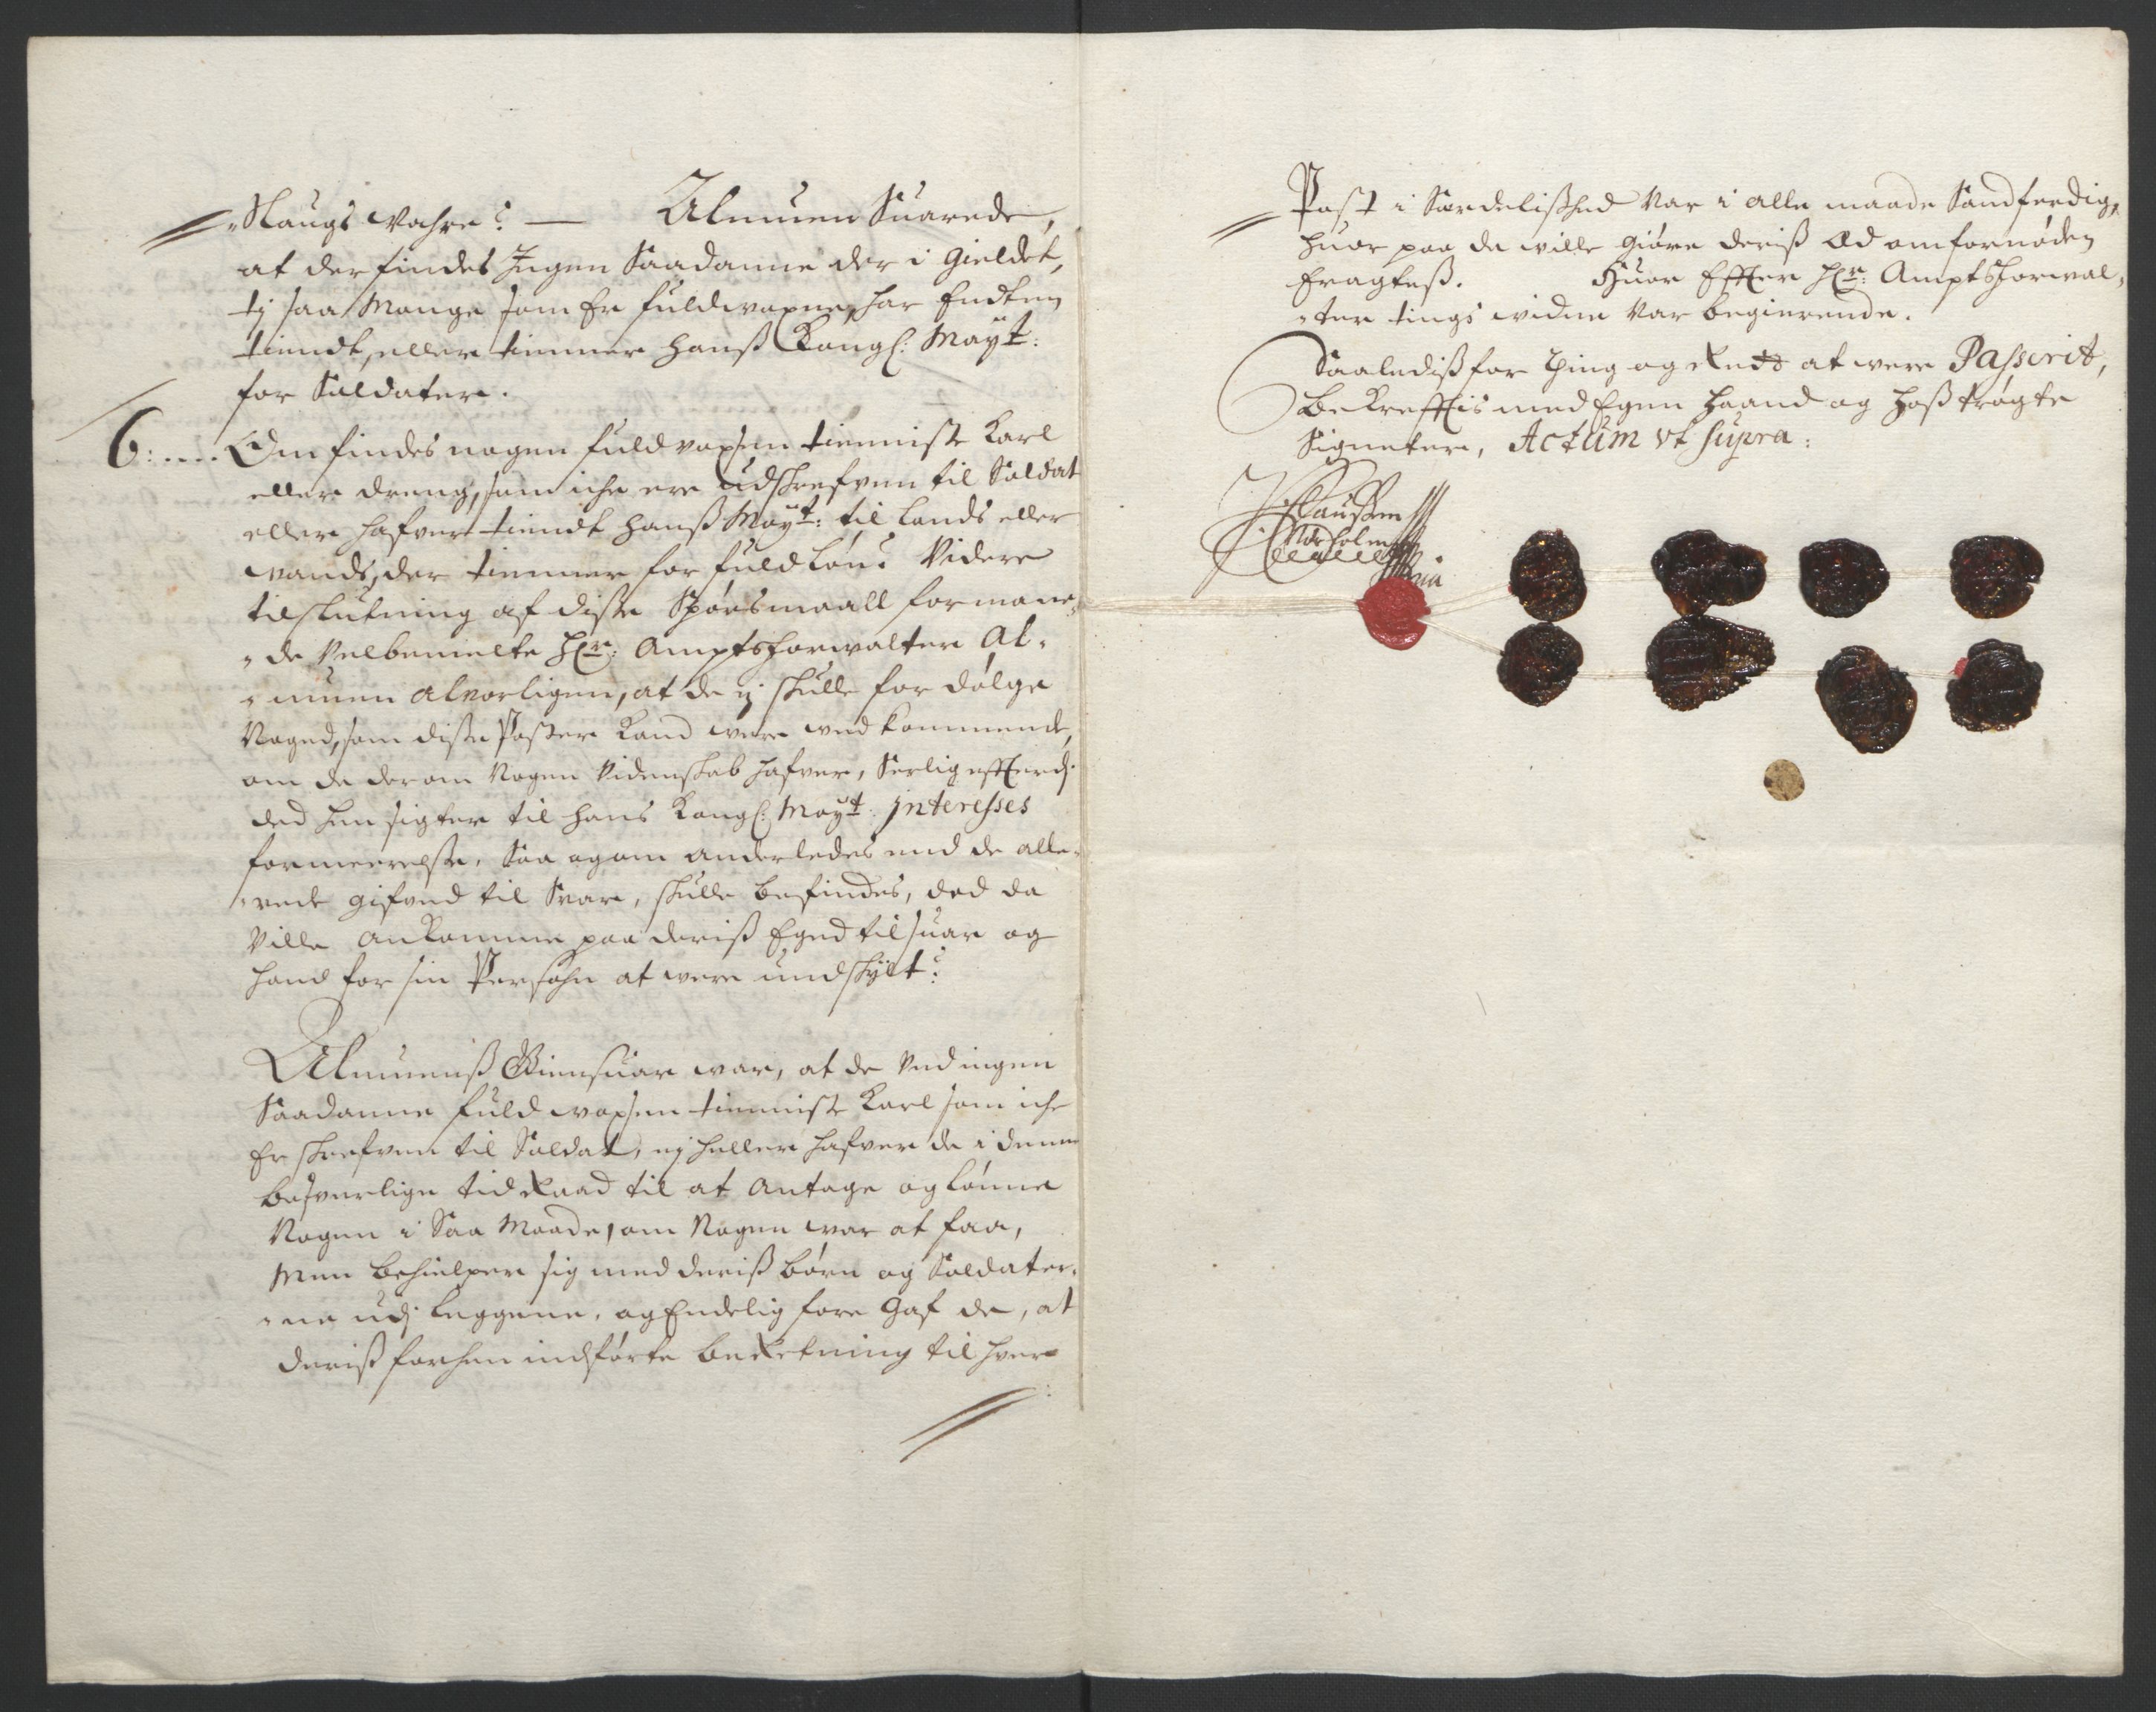 "Slaugs Vahre? — Almuen Suarede,
at der findes Ingen Saadanne der i Gieldet,
tj saa Mange som Er fuldvoxne, har Endten
tiendt, eller tienner hanß Kongl: Mayt:
for Soldater.
6: .... Om findes nogen fuldvoxsen tienniste Karl
eller dreng, som iche ere udschrefven til Soldat
eller hafver tiendt hanß Mayt: til Lands eller
vands, der tienner for fuld Løn? Videre
tilslutning af disse Spørsmaall formane-
"de Velbemelte Hr: Amptsforvalter Al-
"muen alvorligen, at de ej skulle for dølge
Noged, som disse Poster Kand vere ved kommende,
om de derom Nogen Videnskab hafver, Serlig efftterdj
ded hen sigter til hans Kongl: Mayt: Interesses
formeerelsse, Saa og om anderledes end de alle-
"rede gifved til Svar, skulle befindes, ded da
Ville ankomme paa deriß Eged tilsuar og
hand for sin Persohn at vere undskylt?
Almueniß Giensuar var, at de Ved ingen
Saadanne fuld voxsen tienniste Karl som iche
Er skrefven til Soldat, ej heller hafver de i denne
besverlige tid Raad til at Antage og Lønne
Nogen i Saa Maade, om Nogen var at faa,
Men behielper sig med deriß børn og Soldater-
"ne udj Leggene, og Endelig fore Gaf de, at
deriß forhen indførte beRetning til hver
Post i Særdelißhed Var i alle maade Sandferdig,
huor paa de ville giøre deriß Æd om fornøden
Eragteß. Huor Effter Hr: Amptsforval-
"ter tings vidne Var begierende.
Saalediß for Ting og Rett at vere Passerit,
beKrefftis med Egen Haand og hoß trøgte
Signeter, Actum ut supra: